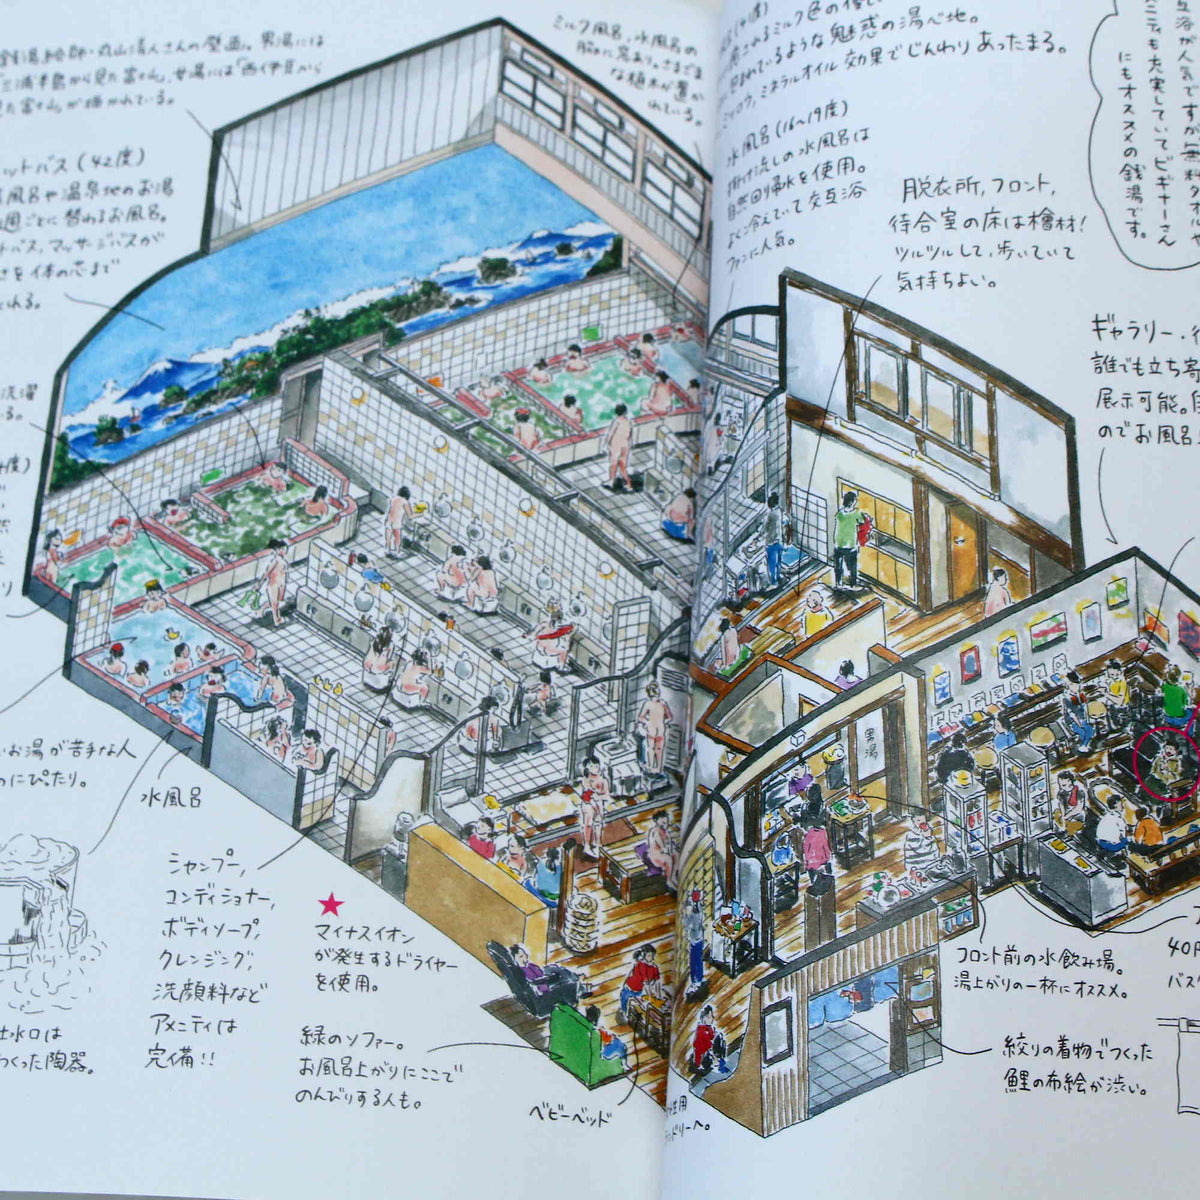 銭湯絵師・丸山清人さんの壁画。男湯には
「三浦半島から見た富士山」、女湯には「西伊豆から
た富士山」が描かれている。
ットバス(42度)
風呂や温泉地のお湯
週ごとに替わるお風呂。
トバス、マッサージバスが
さを体の芯まで
れる。
洗濯
いる。
度)
お湯が苦手な人
にぴたり。
水風呂
吐水口は
つくった陶器。
シャンプー、
コンディショナー、
ボディソープ、
クレンジング、
洗顔料など
アメニティは
完備!!
★
マイナスイオン
が発生するドライヤー
を使用。
緑のソファー。
お風呂上がりにここで
のんびりする人も。
ベビーベッド
ミルク風呂、水風呂の
な植木が置か
れている。
されるミルク色の
ているような魅惑の湯心地。
ミネラルオイル効果でじんわりあったまる。
水風呂(16〜19度)
掛け流しの水風呂は
自然回帰水を使用。
よく冷えていて交互浴
ファンに人気。
脱衣所、フロント、
待合室の床は檜材!
ツルツルして、歩いていて
気持ちよい。
互浴が人気ですが無料タオルや
ニティも充実していてビギナーさん
にもオススメの銭湯です。
ギャラリー・待
誰でも立ち寄
展示可能。
のでお風呂
男湯
フロント前の水飲み場。
湯上がりの一杯にオススメ。
40円
バス
絞りの着物でつくった
鯉の布絵が渋い。
ンドリーへ。